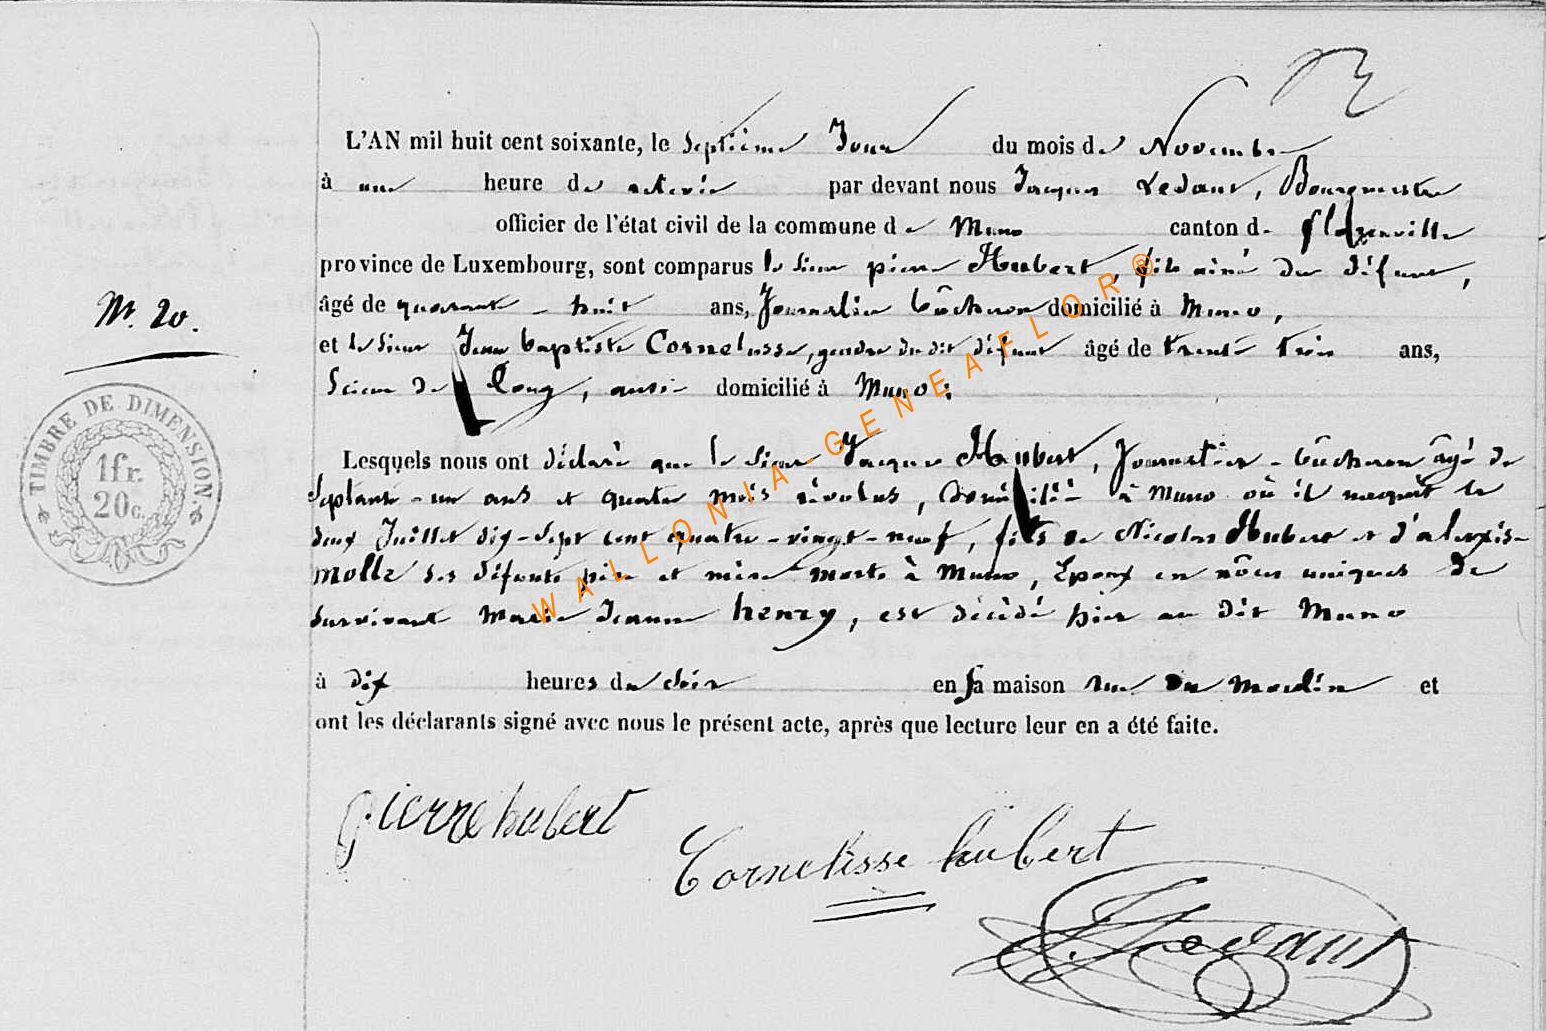 L'AN mil huit cent soixante, le Septième Jour du mois de Novembre
à une heure de relevée par devant nous Jacques Ledant, Bourgmestre
officier de l'état civil de la commune de Muno canton de florenville
province de Luxembourg, sont comparus le sieur pierre Hubert, fils ainé du défunt,
âgé de quarante-huit ans, Journalier bûcheron domicilié à Muno,
N°. 20.
et le sieur Jean baptiste Cornelisse, gendre du dit défunt âgé de trente trois ans,
Scieur de long, aussi domicilié à Muno;
TIMBRE DE DIMENSION
1fr.
20c.
Lesquels nous ont déclaré que le sieur Jacques Hubert, Journalier-bûcheron âgé de
septante-un ans et quatre mois révolus, domicilié à Muno où il naquit le
deux Juillet dix-sept cent quatre-vingt-neuf, fils de Nicolas Hubert et d'alexis-
molle ses défunts père et mère morts à Muno, Epoux en nôces uniques de
survivante Marie Jeanne henry, est décédé hier au dit Muno
à dix heures du soir en sa maison rue du moulin et
ont les déclarants signé avec nous le présent acte, après que lecture leur en a été faite.
pierre hubert
Cornelisse hubert
J. Ledant
WALLONIA-GENEAFLOR®